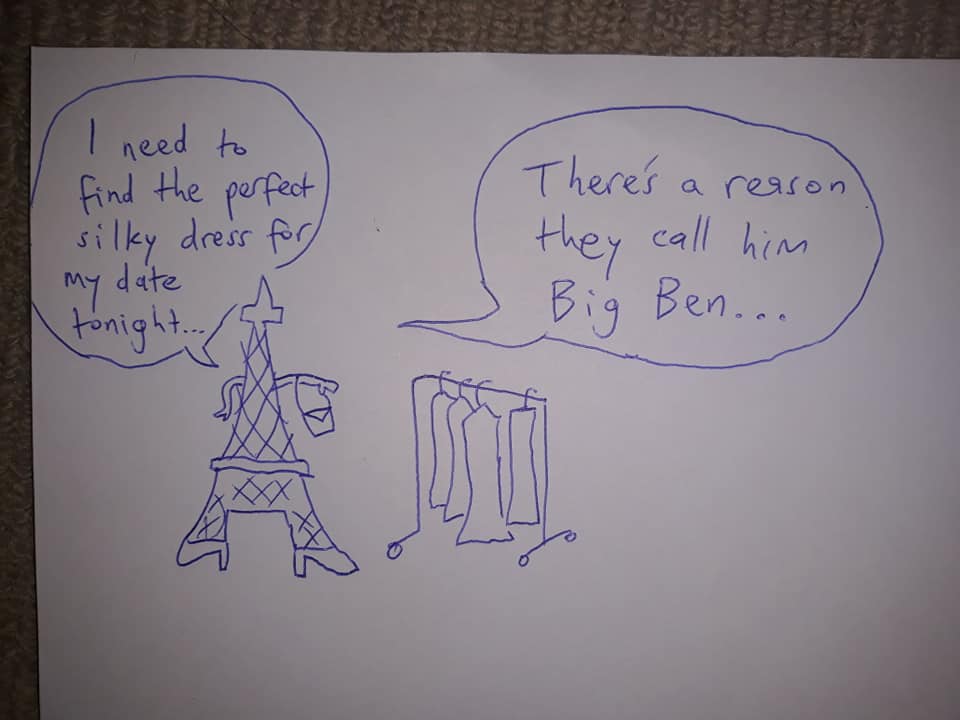 I need to
find the perfect
silky dress for
my date
tonight...
There's a reason
they call him
Big Ben...